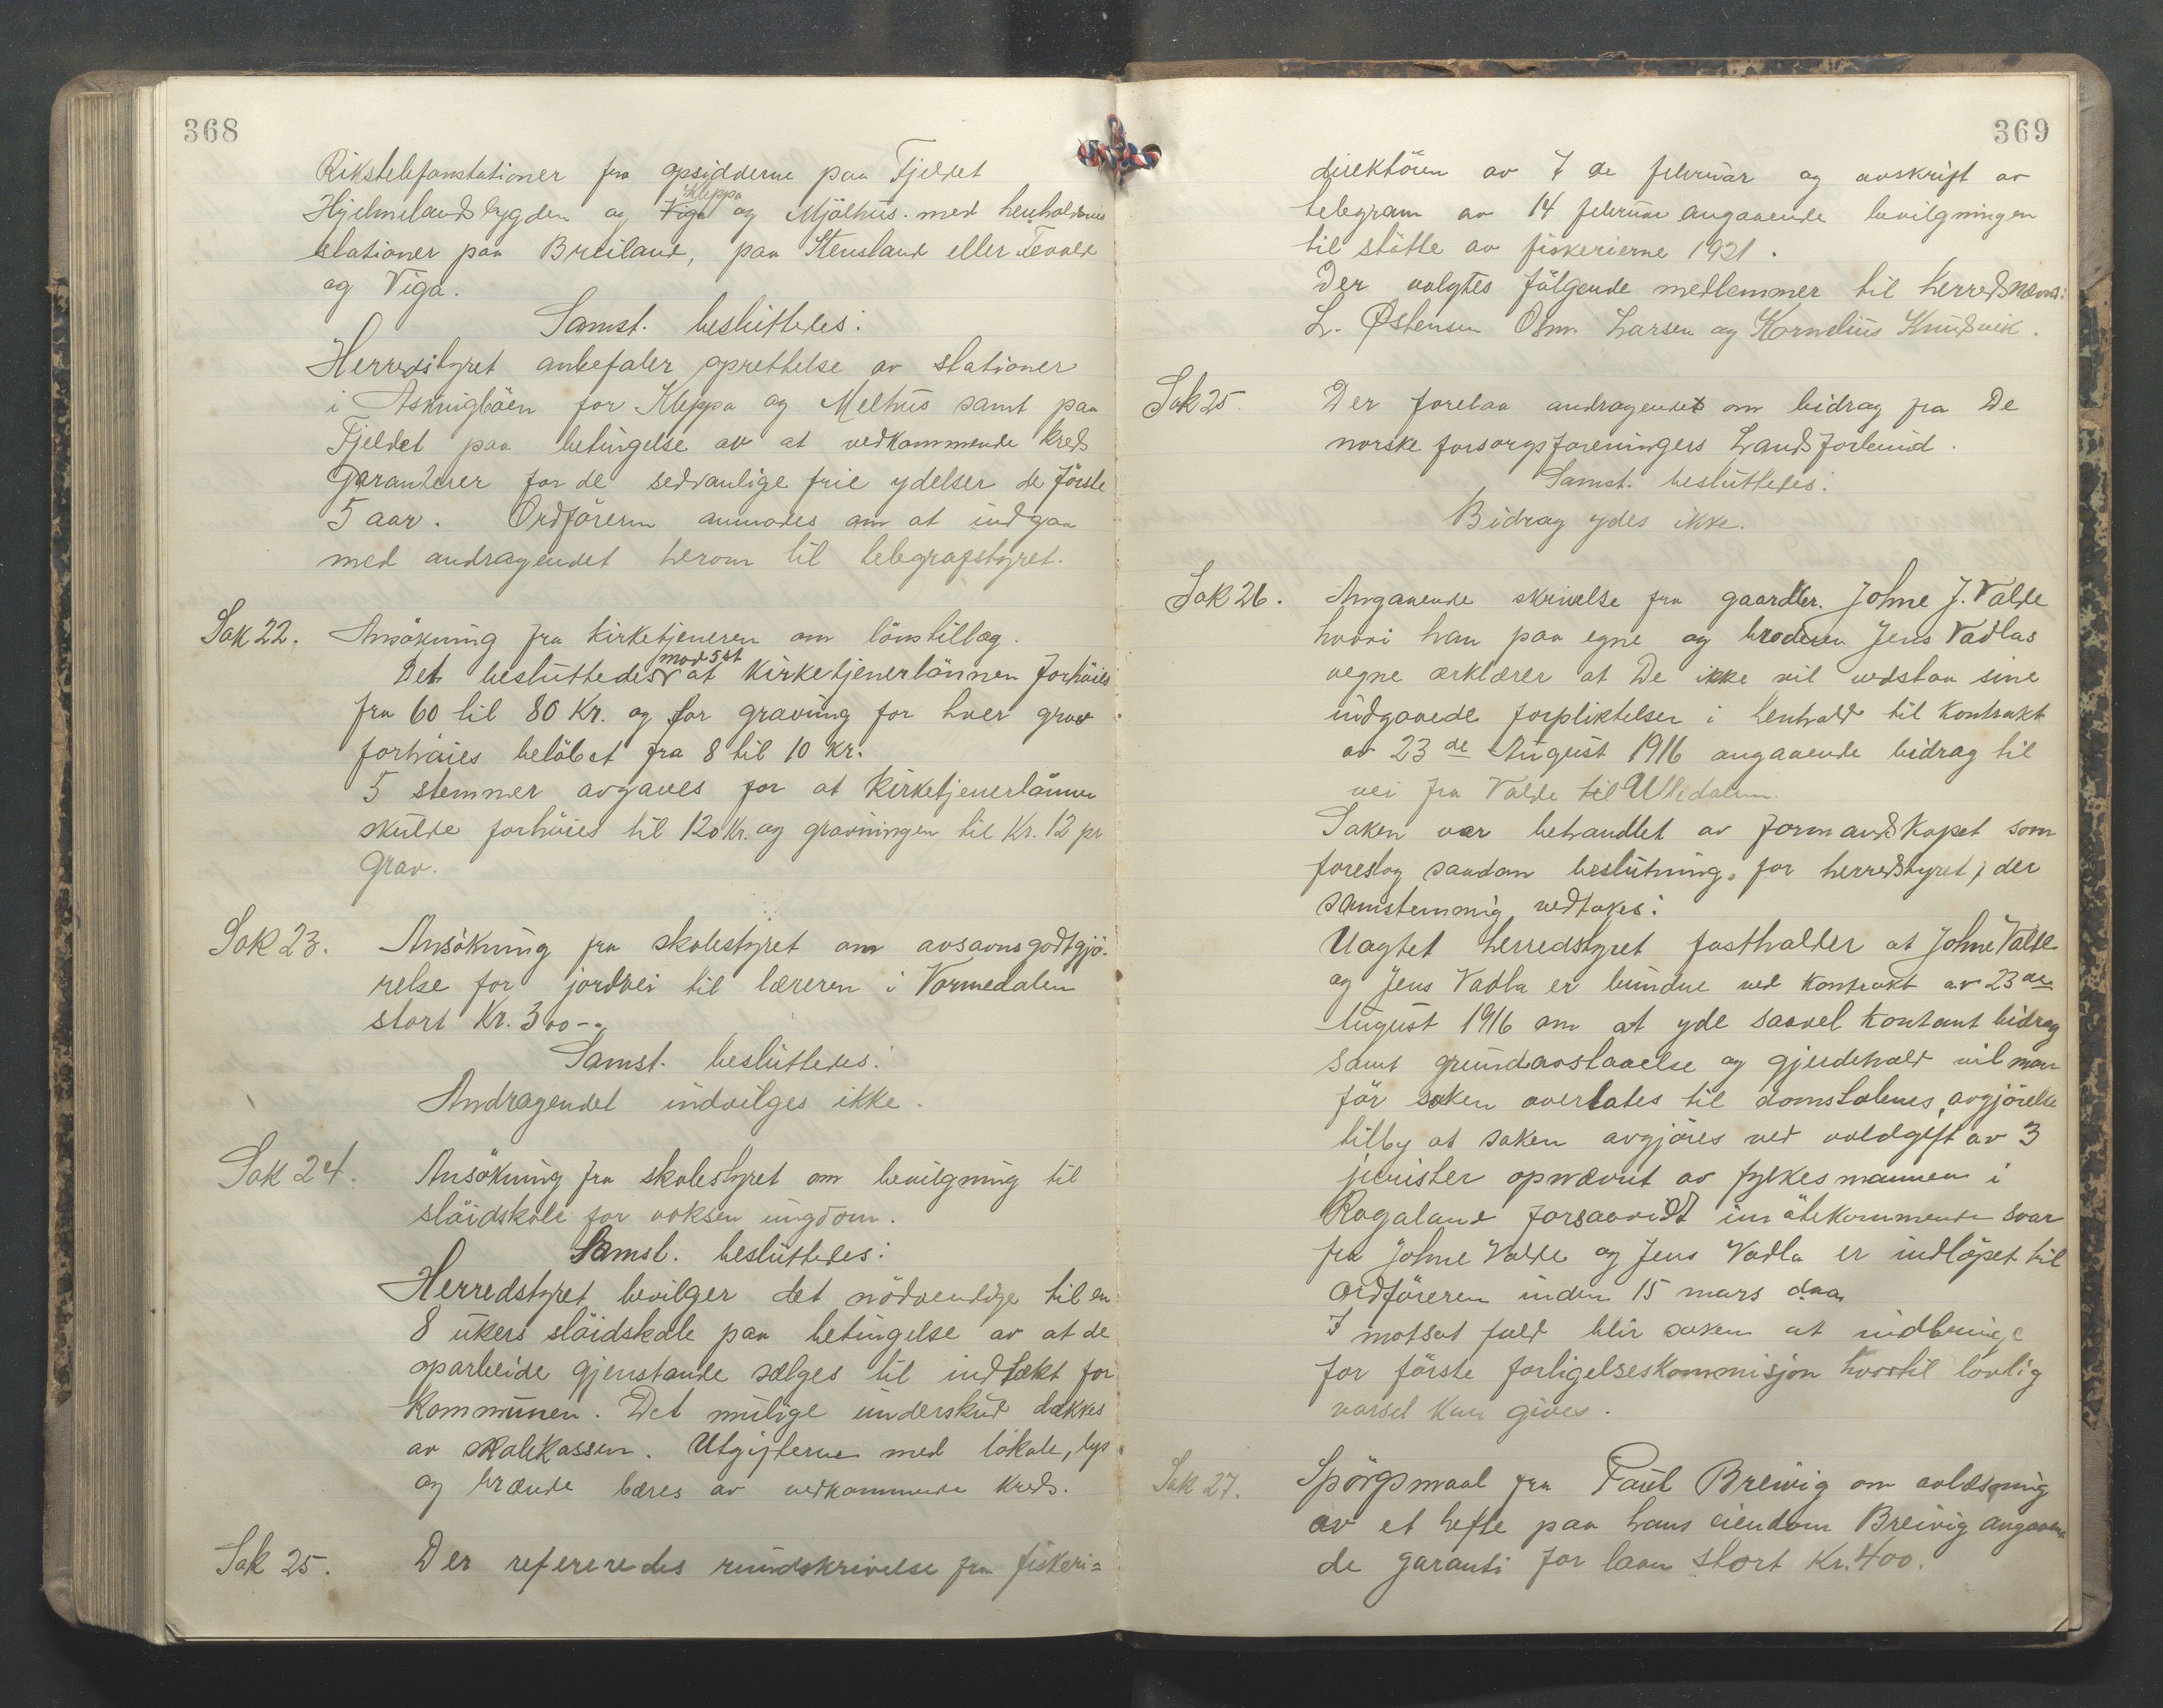 368
Rikstelefonstationer fra opsidderne paa Fjeldet
Hjelmelandsbygden og Viga Kleppa og Mjölhus. med henholdsvis
stationer paa Breiland, paa Stensland eller Tevold
og Viga.
Samst. besluttedes:
Herredstyret anbefaler oprettelse av stationer
i for Kleppa og Melhus samt paa
Fjeldet paa betingelse av at vedkommende kreds
garanterer for de sedvanlige frie ydelser de förste
5 aar. Ordföreren anmodes om at indgaa
med andragendet herom til telegrafstyret.
Sak 22. Ansökning fra kirketjeneren om lönstillæg.
Det besluttedes mod 5 st at kirketjenerlönnen forhöies
fra 60 til 80 Kr. og for graving for hver grav
forhöies belöbet fra 8 til 10 Kr.
5 stemmer avgaves for at kirketjenerlönnen
skulde forhöies til 120 Kr. og gravningen til Kr. 12 pr
grav.
Sak 23. Ansökning fra skolestyret om avsavnsgodtgjö-
relse for jordvei til læreren i Vormedalen
stort Kr. 300-.
Samst. besluttedes:
Andragendet indvilges ikke.
Sak 24. Ansökning fra skolestyret om bevilgning til
slöidskole for voksen ungdom.
Samst. besluttedes:
Herredstyret bevilger det nödvendige til en
8 ukers slöidskole paa betingelse av at de
oparbeide gjenstande sælges til indtækt for
kommunen. Det mulige underskud dækkes
av skolekassen. Utgifterne med lokale, lys
og brænde bæres av vedkommende kreds.
Sak 25. Der refereredes rundskrivelse fra fiskeri=
369
direktören av 7 de februar og avskrift av
telegram av 14 februar angaaende bevilgningen
til stötte av fiskerierne 1921.
Der valgtes fölgende medlemmer til herredsnævnd:
L. Østensen Osm. Larsen og Kornelius Knudsvik.
Sak 25. Der forelaa andragendet om bidrag fra De
norske forsorgsforeningers Landsforbund.
Samst. besluttedes:
Bidrag ydes ikke.
Sak 26. Angaaende skrivelse fra gaardbr. Johne J. Valde
hvori han paa egne og broderen Jens Vadlas
vegne ærklærer at De ikke vil vedstaa sine
indgaaede forpliktelser i henhold til kontrakt
av 23 de August 1916 angaaende bidrag til
vei fra Valde til Ulledalen.
Saken var behandlet av formandskapet som
foreslog saadan beslutning for herredstyret, der
samstemmig vedtokes:
Uagtet herredstyret fastholder at Johne Valde
og Jens Vadla er bundne ved kontrakt av 23 de
August 1916 om at yde saavel kontant bidrag
samt grundavstaaelse og gjerdehold vil man
för saken overlates til domstolenes avgjörelse
tilby at saken avgjöres ved voldgift av 3
jurister opnævnt av fylkesmannen i
Rogaland forsaavidt imötekommende svar
fra Johne Valde og Jens Vadla er indlöpet til
ordföreren inden 15 mars d.aa.
I motsat fald blir saken at indbringe
for förste forligelseskommisjon hvortil lovlig
varsel kan gives.
Sak 27. Spörgsmaal fra Paul Breivig om avlæsning
av et hefte paa hans eiendom Breivig angaaen
de garanti for laan stort Kr. 400.